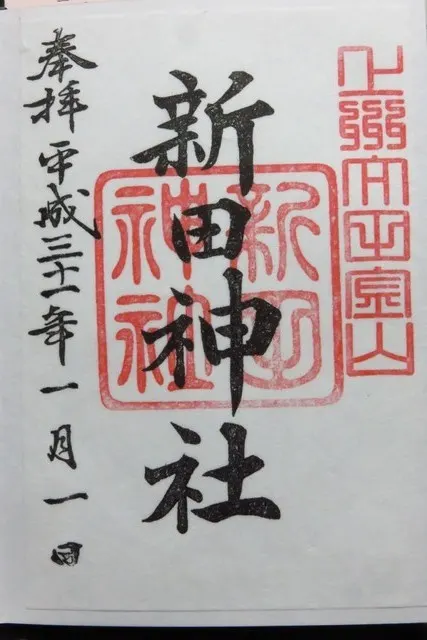 上州太田金山
新田神社
新田
神社
奉拝 平成三十一年一月一日